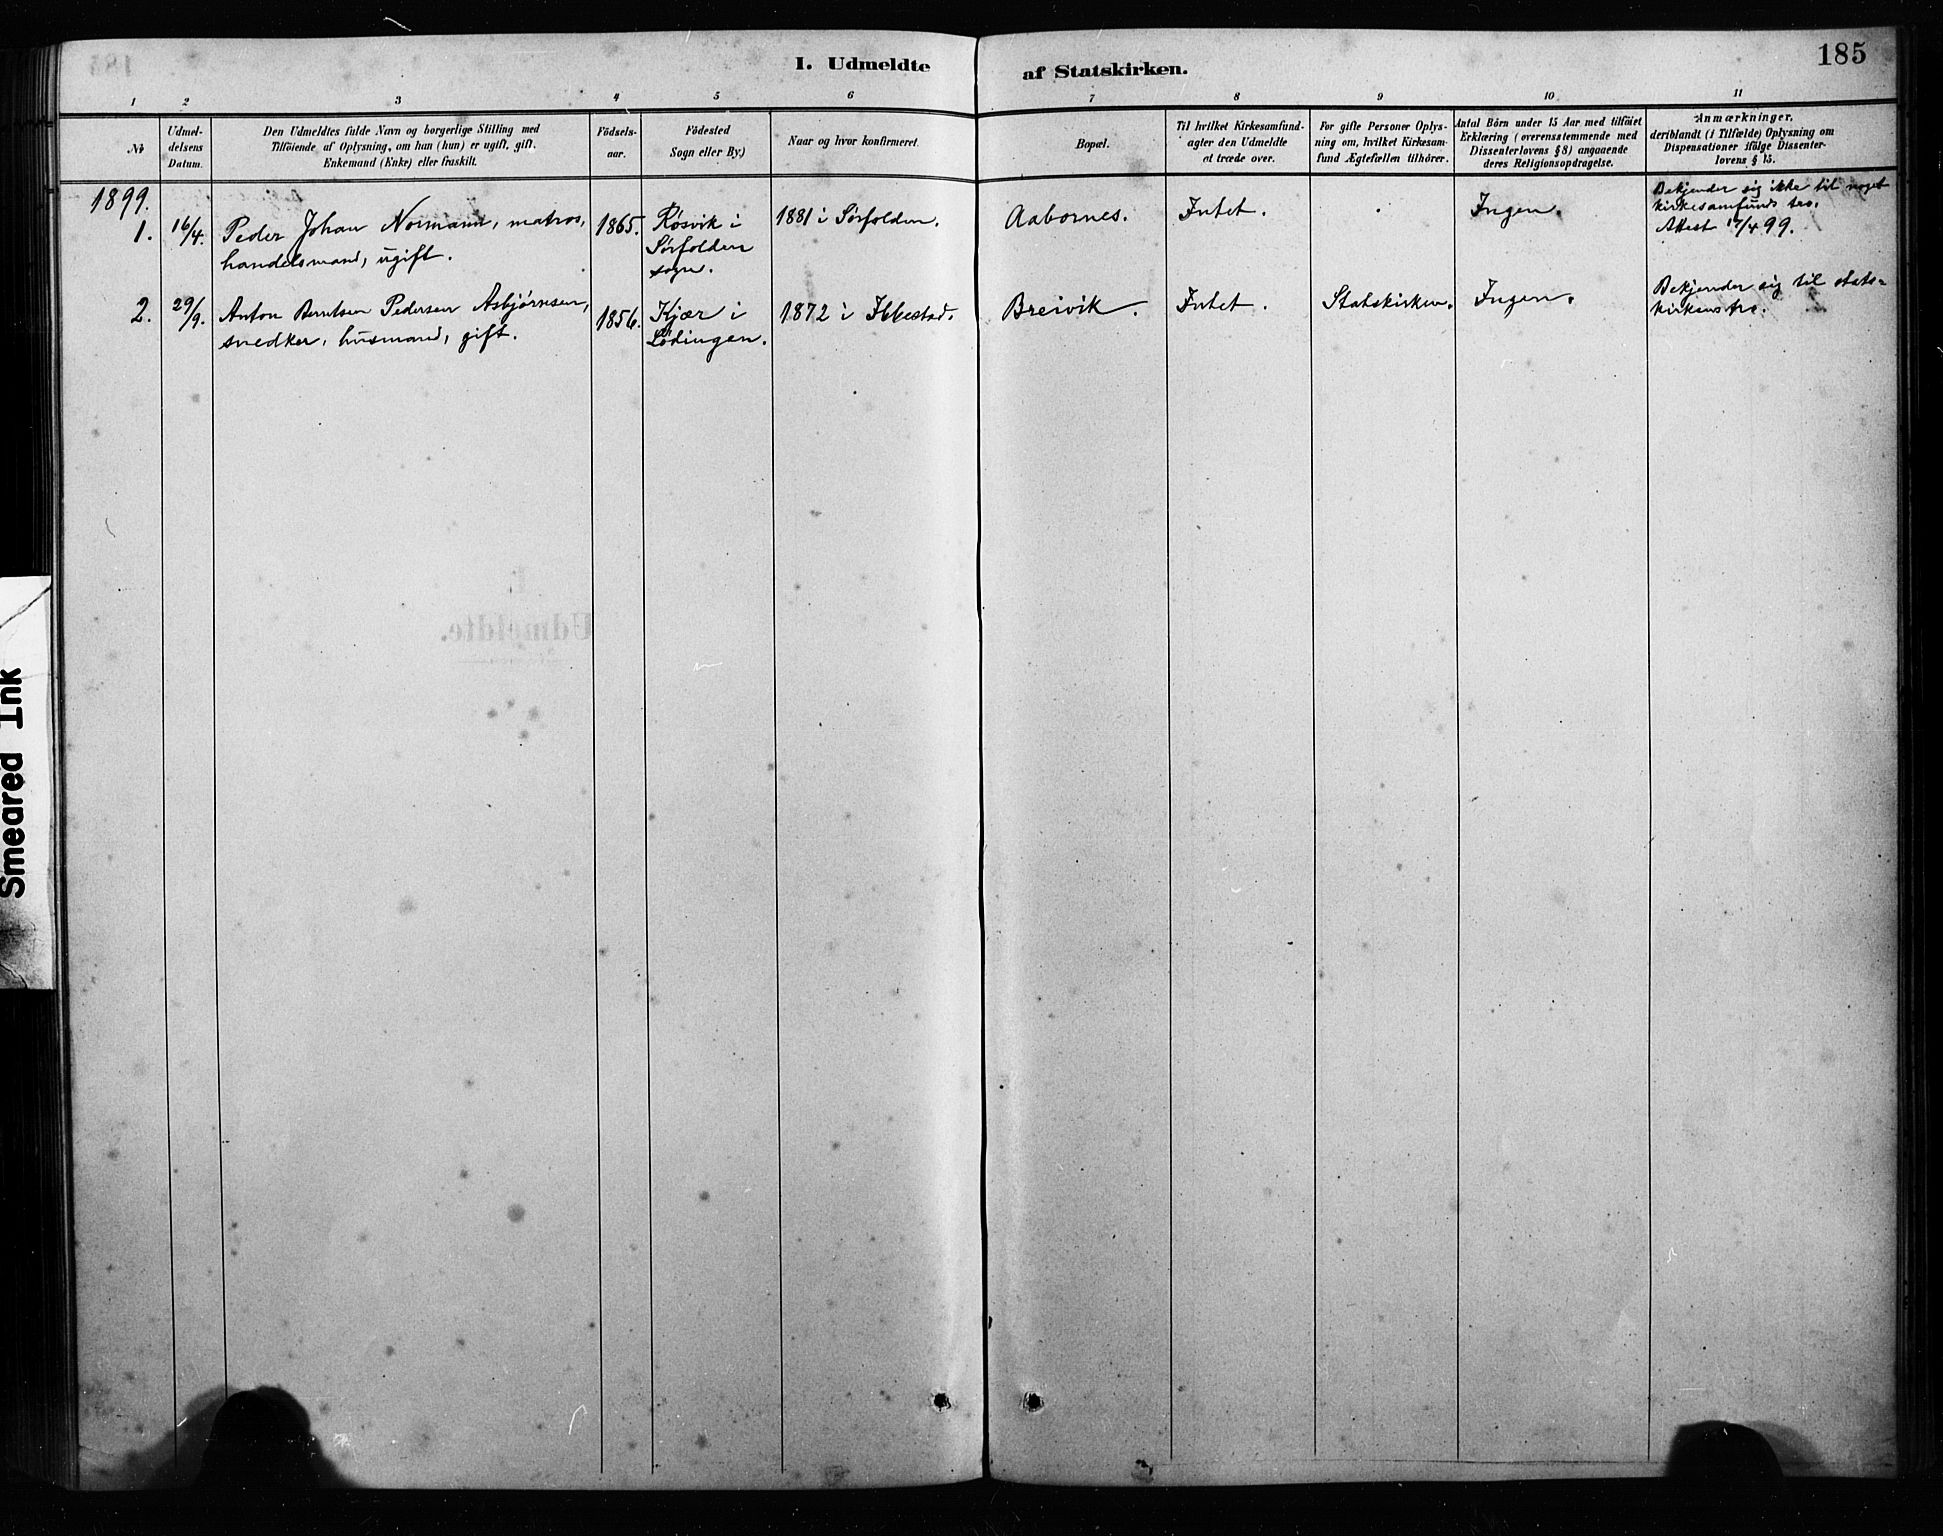 185
I. Udmeldte af Statskirken.
1 2 3 4 5 6 7 8 9 10 11
No
Udmel-
delsens
Datum.
Den Udmeldtes fulde Navn og borgerlige Stilling med
Tilföiende af Oplysning, om han (hun) er ugift, gift,
Enkemand (Enke) eller fraskilt.
Födsels-
aar.
Födested
Sogn eller By.)
Naar og hvor konfirmeret
Bopæl.
Til hvilket Kirkesamfund-
agter den Udmeldte
at træde over.
For gifte Personer Oplys-
ning om, hvilket Kirkesam-
fund Ægtefællen tilhörer.
Antal Börn under 15 Aar med tilföiet
Erklæring (overensstemmende med
Dissenterlovens § 8) angaaende
deres Religionsopdragelse.
Anmærkninger,
deriblandt (i Tilfælde) Oplysning om
Dispensationer ifölge Dissenter-
lovens § 15.
1899.
1.
16/4.
Peder Johan Normann, matros,
handelsmand, ugift.
1865.
Røsvik i
Sørfolden
sogn.
1881 i Sørfolden.
Aabornes.
Intet.
Ingen.
Bekjender sig ikke til noget
kirkesamfunds tro.
Attest 17/4 99.
2.
29/9.
Anton Berntsen Pedersen Asbjørnsen,
snedker, husmand, gift.
1856.
Kjær i
Lødingen.
1872 i Ibbestad.
Breivik.
Intet.
Statskirken.
Ingen.
Bekjender sig til stats-
kirkens tro.
Udmeldte.
Smeared Ink